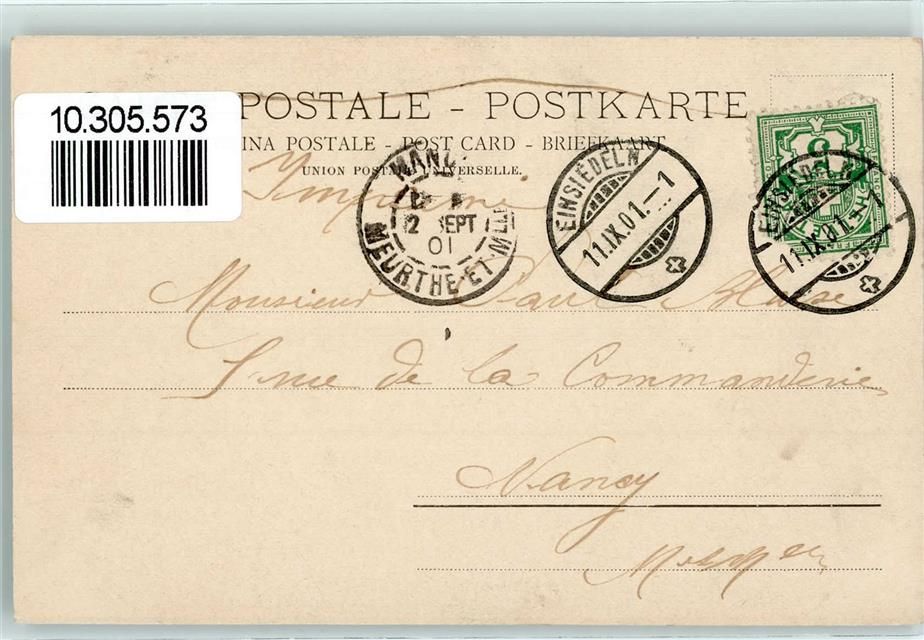 10.305.573
POSTALE - POSTKARTE
INA POSTALE - POST CARD - BRIEFKAART
UNION POSTALE UNIVERSELLE.
Imprimé
NANC
12 SEPT
01
MEURTHE-ET-MLLE
EINSIEDELN
11.IX.01.-1
EINSIEDELN
11.IX.01.-1
5
Monsieur Paul
rue de la Commanderie
Nancy